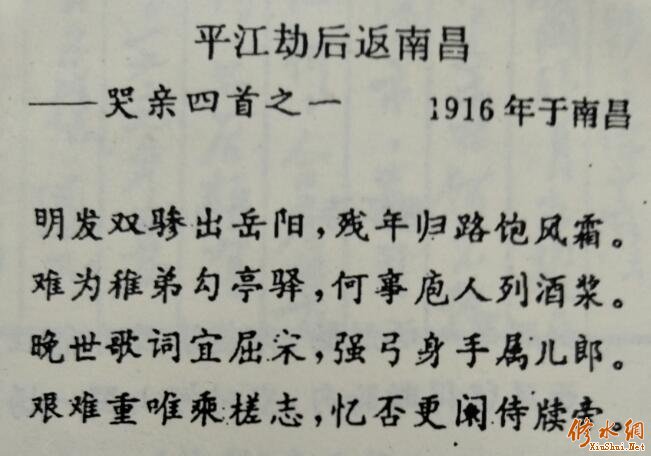 平江劫后返南昌
——哭亲四首之一 1916年于南昌
明发双骖出岳阳，残年归路饱风霜。
难为稚弟勾亭驿，何事庖人列酒浆。
晚世歌词宜屈宋，强弓身手属儿郎。
艰难重唯乘槎志，忆否更阑侍牍旁。
修水網
XiuShui.Net